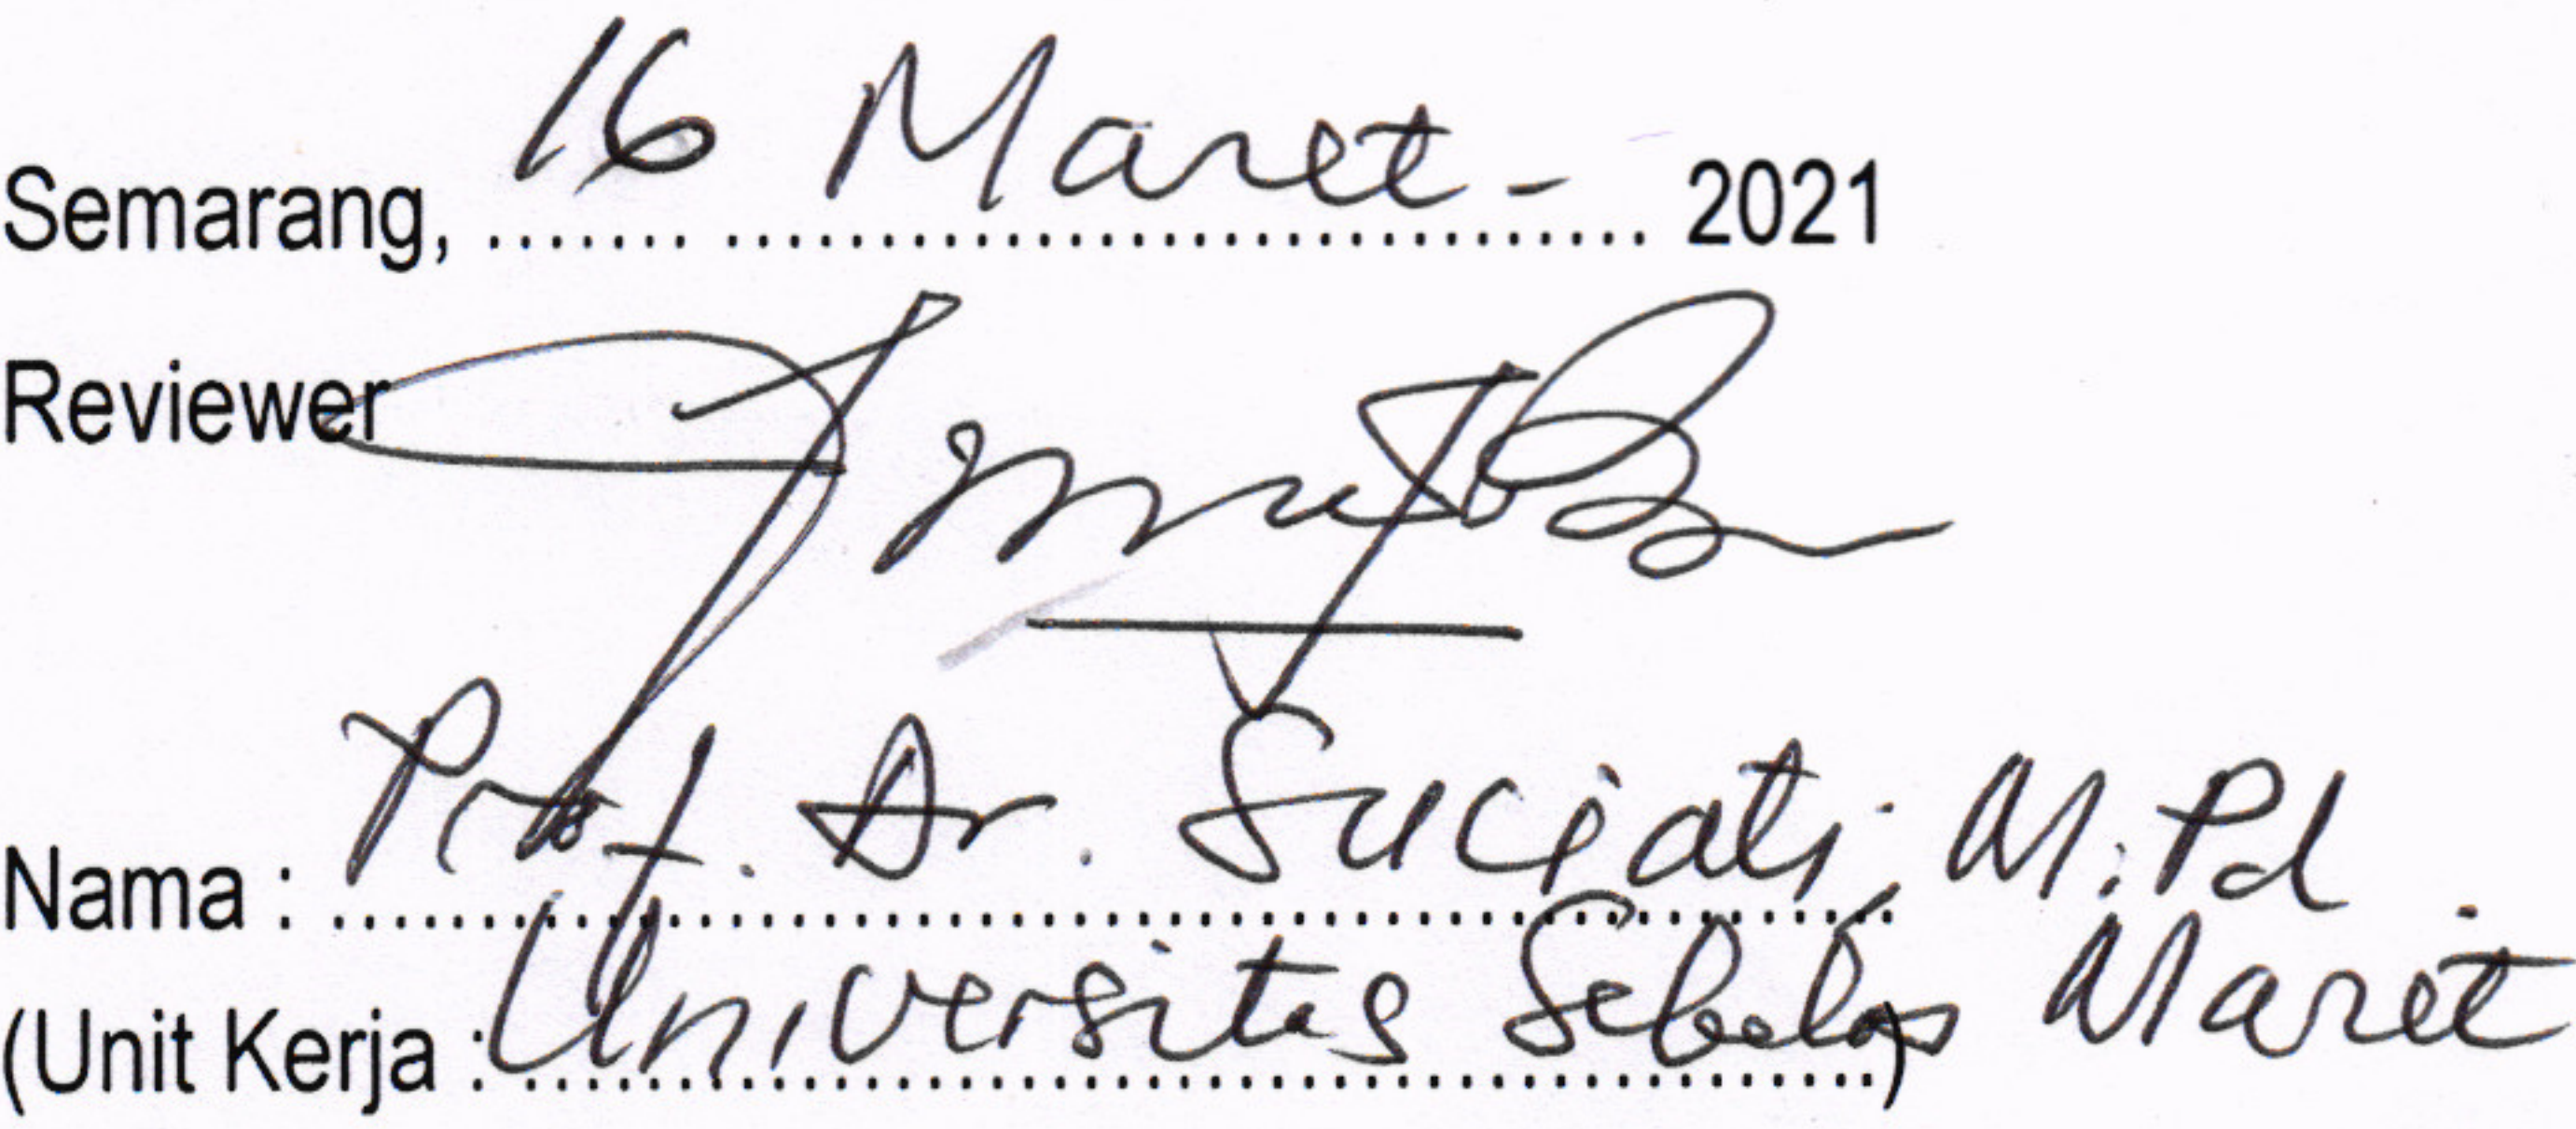 Semarang, 16 Maret - 2021
Reviewer
Nama : Prof. Dr. Suciati, M.Pd.
(Unit Kerja : Universitas Sebelas Maret)